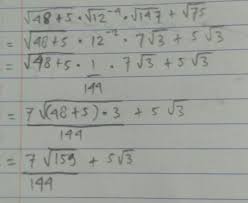 √48+5 · √12⁻⁴ · √147 + √75
= √48+5 · 12⁻² · 7√3 + 5√3
= √48+5 · 1/144 · 7√3 + 5√3
= 7√(48+5)·3/144 + 5√3
= 7√159/144 + 5√3